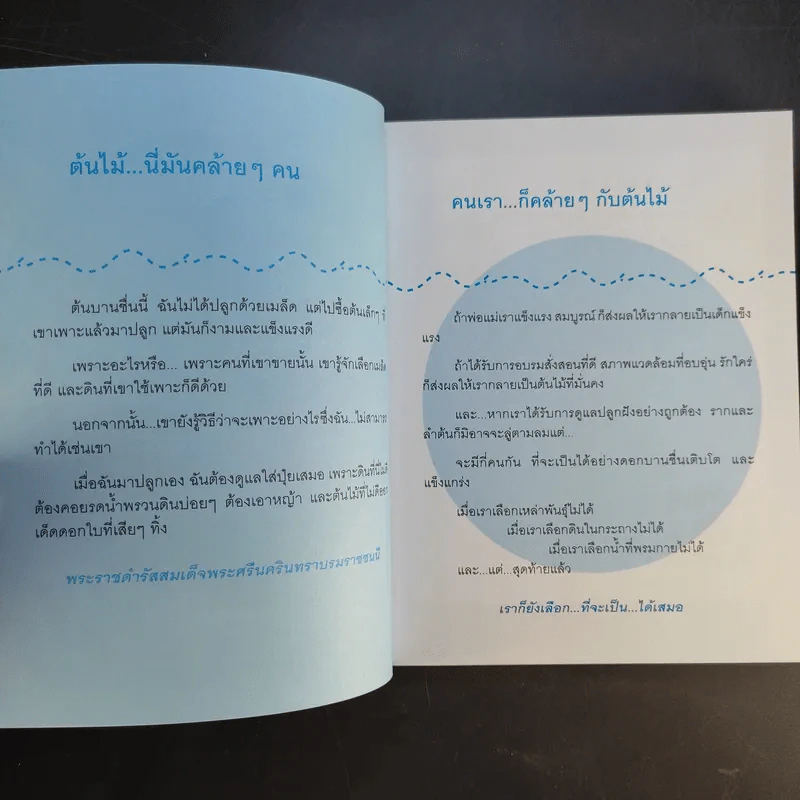 ต้นไม้...นี่มันคล้ายๆ คน
ต้นบานชื่นนี้ ฉันไม่ได้ปลูกด้วยเมล็ด แต่ไปซื้อต้นเล็กๆ ที่
เขาเพาะแล้วมาปลูก แต่มันก็งามและแข็งแรงดี
เพราะอะไรหรือ... เพราะคนที่เขาขายนั้น เขารู้จักเลือกเมล็ด
ที่ดี และดินที่เขาใช้เพาะก็ดีด้วย
นอกจากนั้น...เขายังรู้วิธีว่าจะเพาะอย่างไรซึ่งฉัน...ไม่สามารถ
ทำได้เช่นเขา
เมื่อฉันมาปลูกเอง ฉันต้องดูแลใส่ปุ๋ยเสมอ เพราะดินที่นี่ไม่ดี
ต้องคอยรดน้ำพรวนดินบ่อยๆ ต้องเอาหญ้า และต้นไม้ที่ไม่ดีออก
เด็ดดอกใบที่เสียๆ ทิ้ง
พระราชดำรัสสมเด็จพระศรีนครินทราบรมราชชนนี
คนเรา...ก็คล้ายๆ กับต้นไม้
ถ้าพ่อแม่เราแข็งแรง สมบูรณ์ ก็ส่งผลให้เรากลายเป็นเด็กแข็ง
แรง
ถ้าได้รับการอบรมสั่งสอนที่ดี สภาพแวดล้อมที่อบอุ่น รักใคร่
ก็ส่งผลให้เรากลายเป็นต้นไม้ที่มั่นคง
และ...หากเราได้รับการดูแลปลูกฝังอย่างถูกต้อง รากและ
ลำต้นก็มิอาจจะลู่ตามลมแต่...
จะมีกี่คนกัน ที่จะเป็นได้อย่างดอกบานชื่นเติบโต และ
แข็งแกร่ง
เมื่อเราเลือกเหล่าพันธุ์ไม่ได้
เมื่อเราเลือกดินในกระถางไม่ได้
เมื่อเราเลือกน้ำที่พรมกายไม่ได้
และ...แต่...สุดท้ายแล้ว
เราก็ยังเลือก...ที่จะเป็น...ได้เสมอ